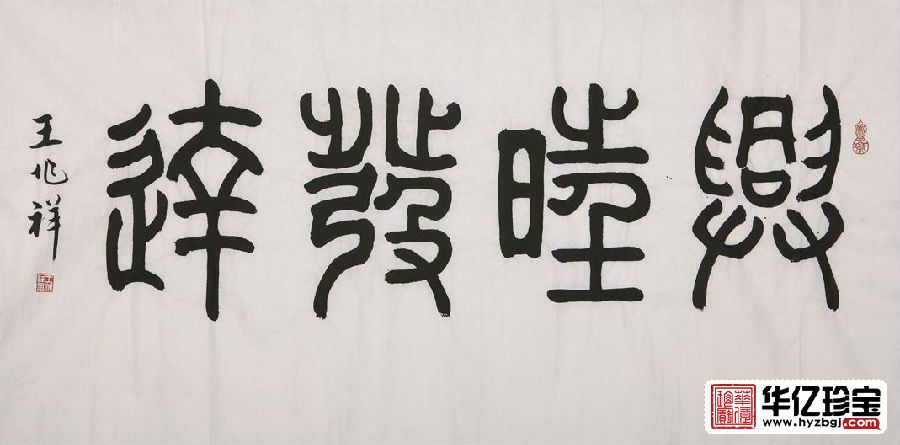 興旺發達
王兆祥
華億珍寶
华亿珍宝
www.hyzbgj.com